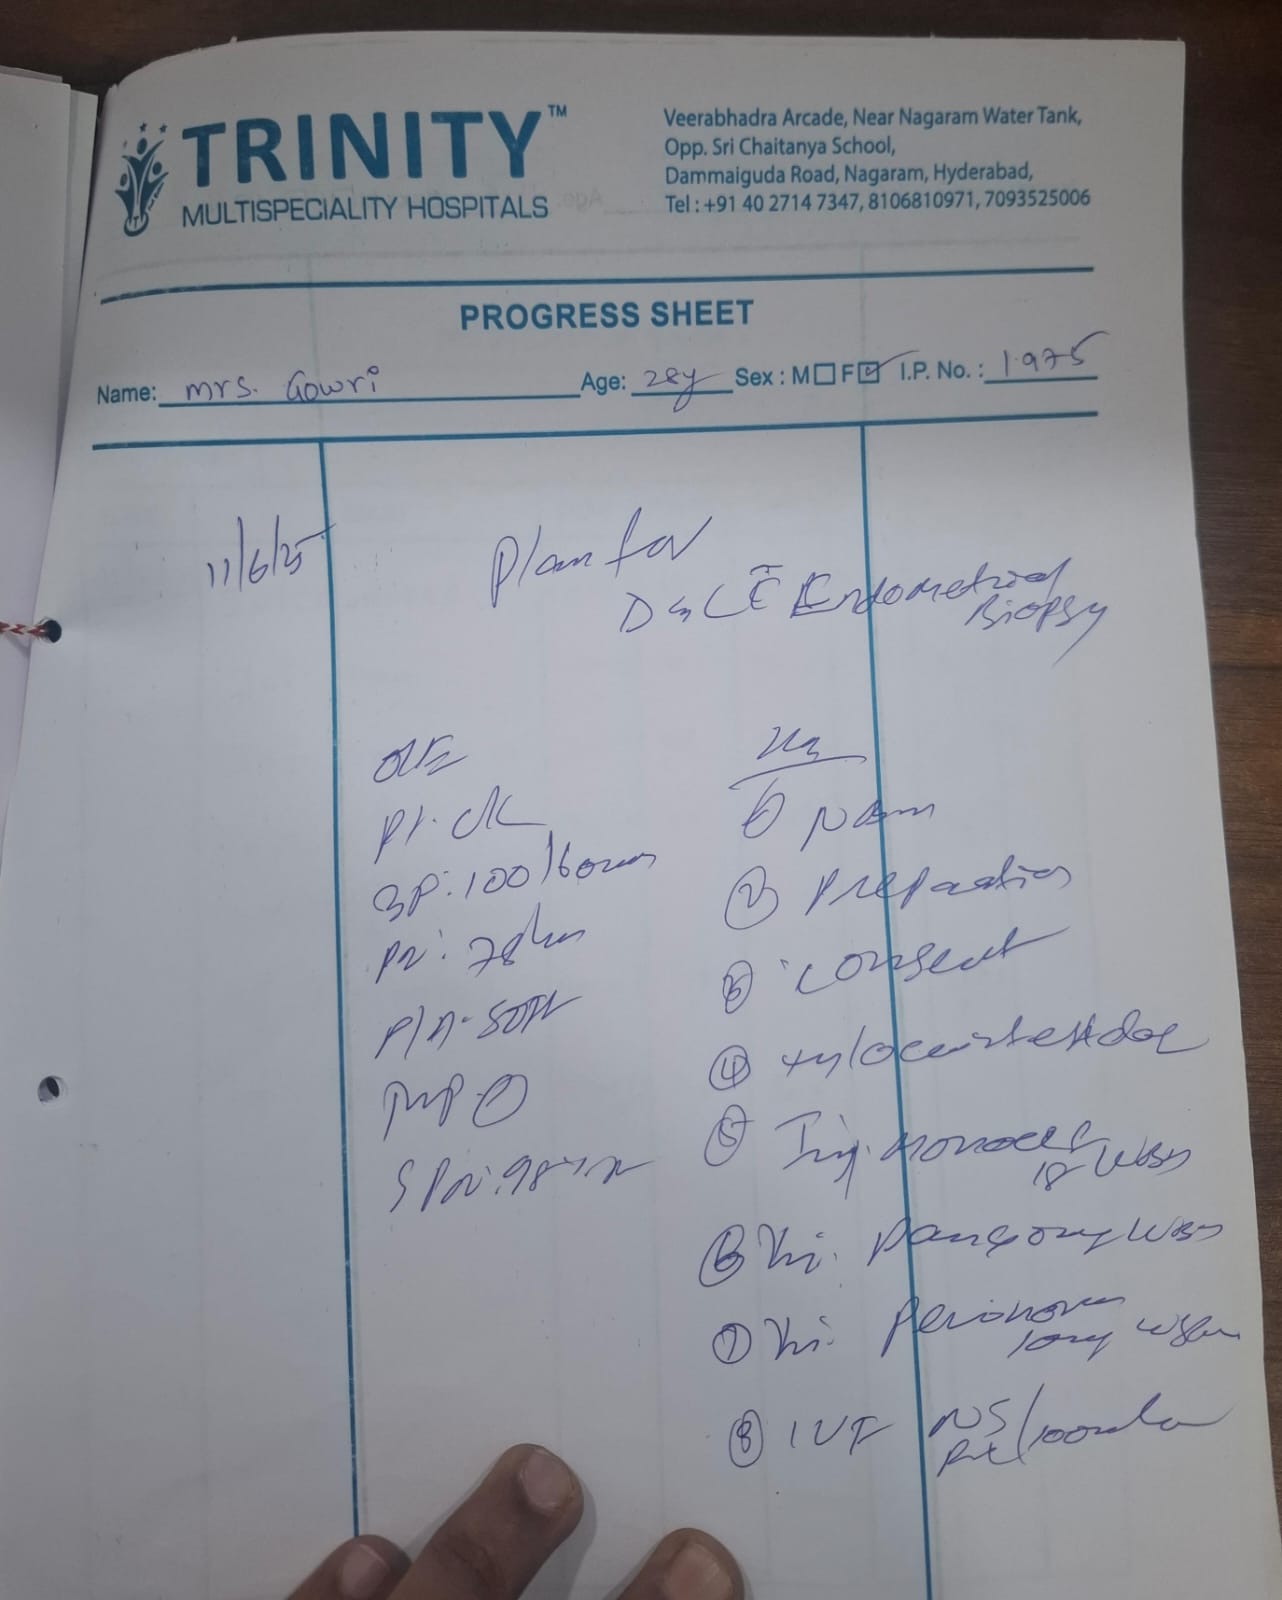 TRINITY™
MULTISPECIALITY HOSPITALS
Veerabhadra Arcade, Near Nagaram Water Tank,
Opp. Sri Chaitanya School,
Dammaiguda Road, Nagaram, Hyderabad,
Tel : +91 40 2714 7347, 8106810971, 7093525006
PROGRESS SHEET
Name: Mrs. Gowri Age: 28y Sex : M F I.P. No. : 1975
11/6/25
Plan for
D&C c̄ Endometrial
Biopsy
O/E
Pt. c/c
BP: 100/60mm
PR: 78bm
P/A- soft
SPO2: 98%
① NBM
② Preparation
③ consent
④ xylocaine test dose
⑤ Inj. Monocef
1g
⑥ Inj. Pan 40mg
⑦ Inj. Perinorm
10mg
⑧ IVF NS
RL/100ml